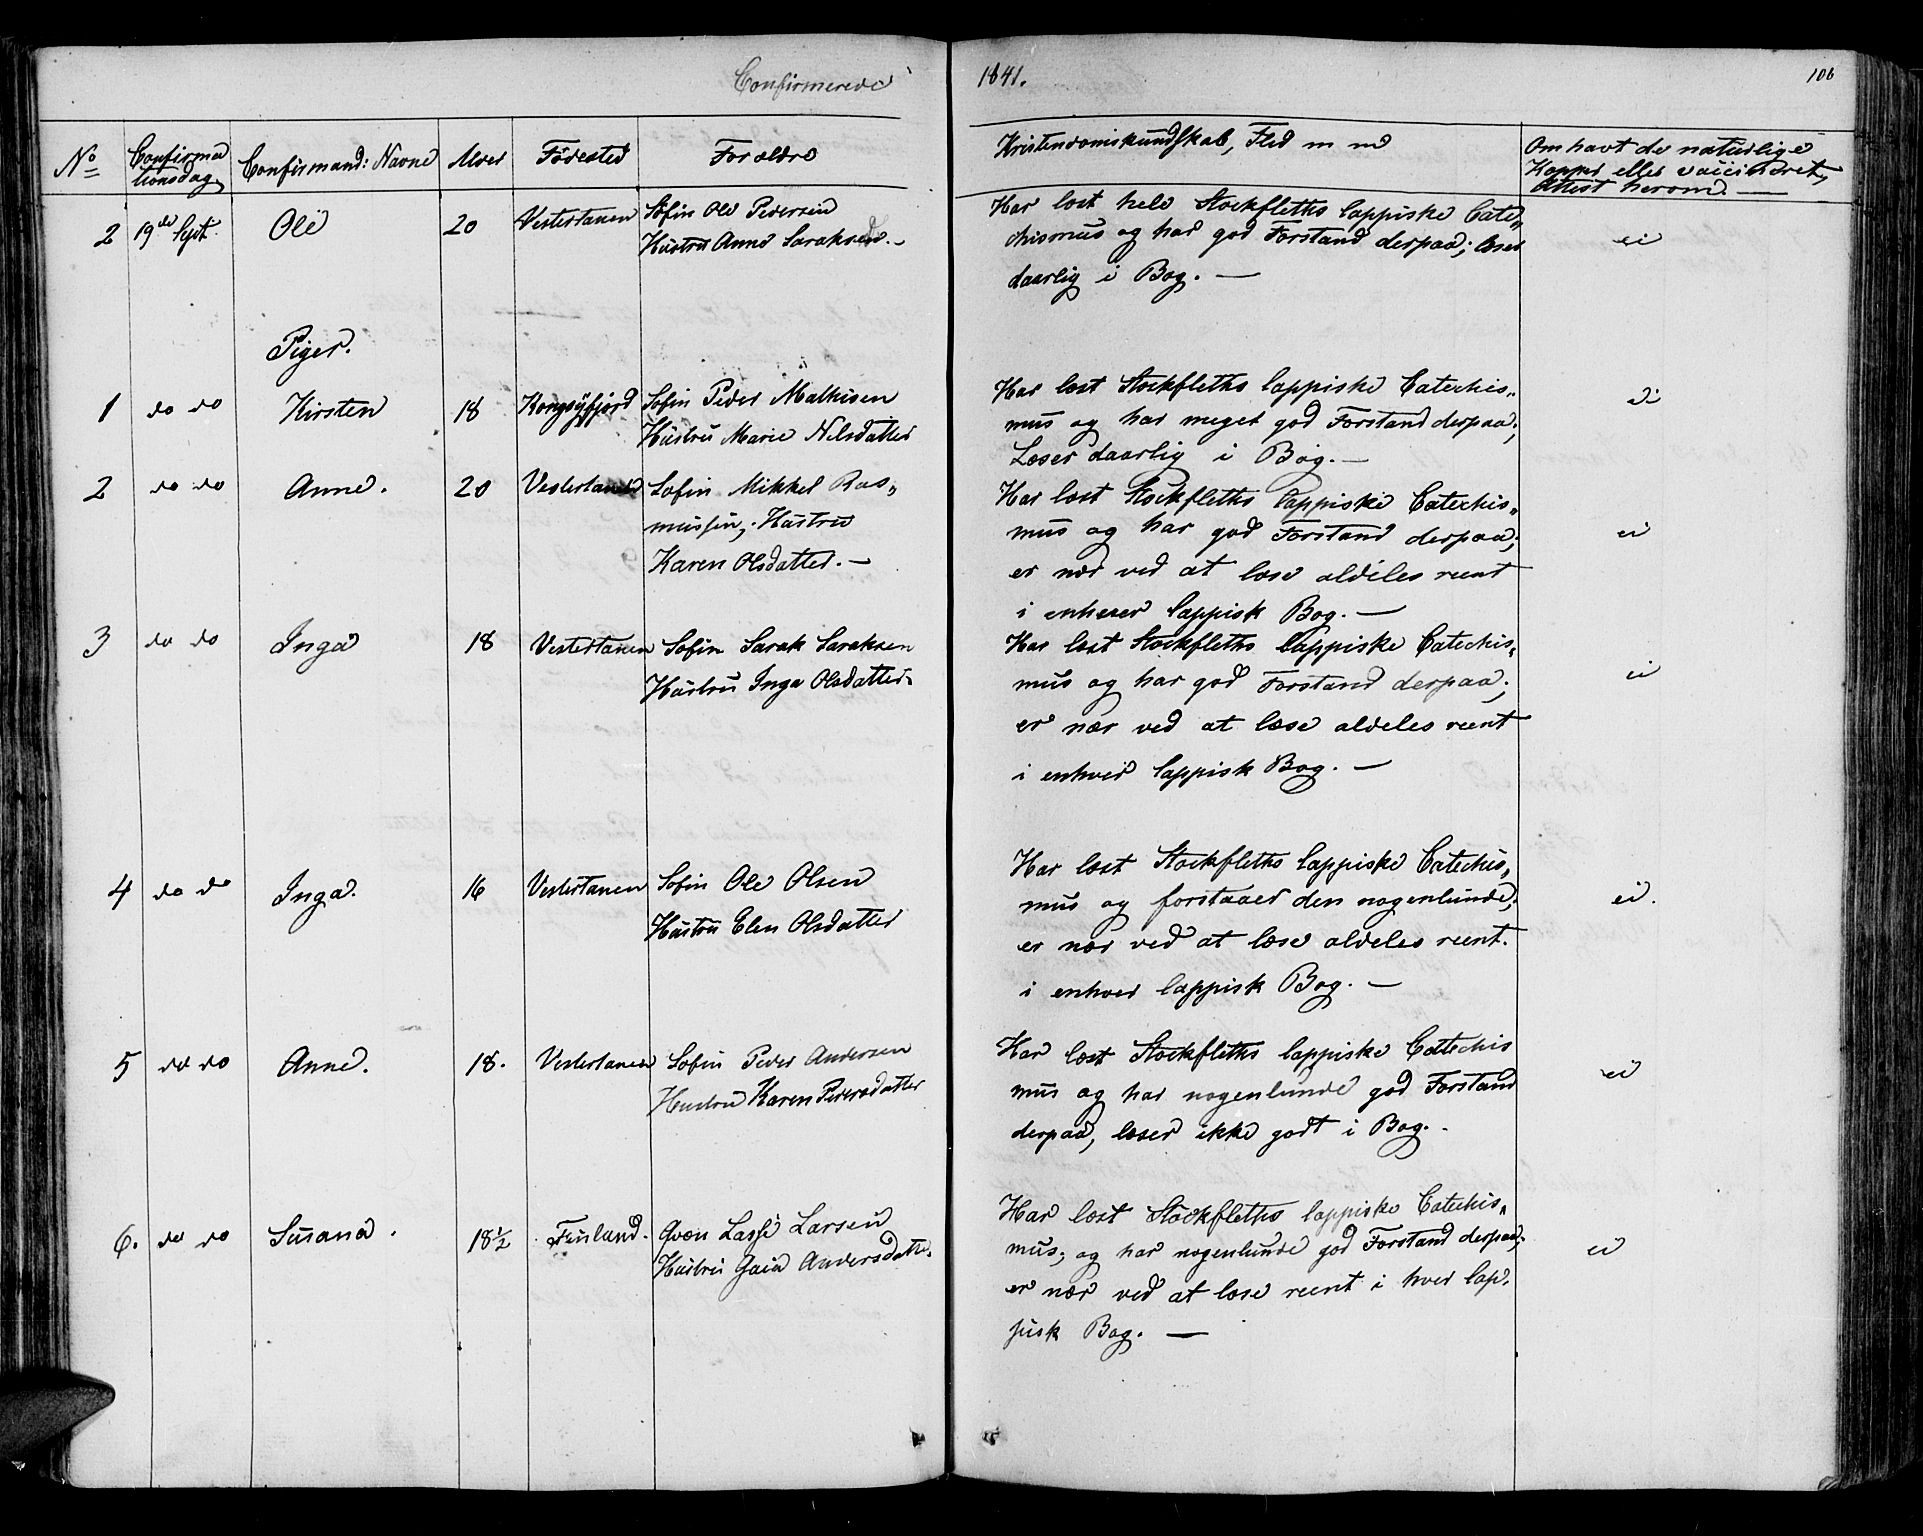 Confirmerede
1841.
106
No
Confirmationsdag
Confirmand: Navne
Alder
Fødested
Forældre
Kristendomskundskab, Flid m m
Om havt de naturlige
Kopper eller vaccineret,
Attest herom. —
2 19de Sept. Ole 20 Vestertanen Søfin Ole Pedersen
Hustru Anne Saraksd. —
Har læst hele Stockfleths lappiske Cate„
chismus og har god Forstand derpaa; læser
daarlig i Bog. —
ei
Piger.
1 do do Kirsten 18 Kongsfjord Søfin Peder Mathisen
Hustru Marie Nilsdatter
Har læst Stockfleths lappiske Catechis„
mus og har meget god Forstand derpaa;
Læser daarlig i Bog. —
ei
2 do do Anne. 20 Vestertanen Søfin Mikkel Ras„
mussen, Hustru
Karen Olsdatter. —
Har læst Stockfleths lappiske Catechis„
mus og har god Forstand derpaa;
er nær ved at læse aldeles reent
i enhver lappisk Bog. —
ei
3 do do Inga 18 Vestertanen Søfin Sarak Saraksen
Hustru Inga Olsdatter
Har læst Stockfleths lappiske Catechis„
mus og har god Forstand derpaa;
er nær ved at læse aldeles reent
i enhver lappisk Bog. —
ei
4 do do Inga. 16 Vestertanen Søfin Ole Olsen
Hustru Elen Olsdatter
Har læst Stockfleths lappiske Catechis„
mus og forstaaer den nogenlunde;
er nær ved at læse aldeles reent.
i enhver lappisk Bog. —
ei.
5 do do Anne. 18. Vestertanen Søfin Peder Andersen
Hustru Karen Pedersdatter
Har læst Stockfleths lappiske Catechis
mus og har nogenlunde god Forstand
derpaa, læser ikke godt i Bog. -
ei
6. do do Susana. 18½ Finland. Qvæn Lasse Larsen
Hustru Gaia Andersdatter.
Har læst Stockfleths lappiske Catechis„
mus; og har nogenlunde god Forstand derpaa;
er nær ved at læse reent i hver lap„
pisk Bog. —
ei